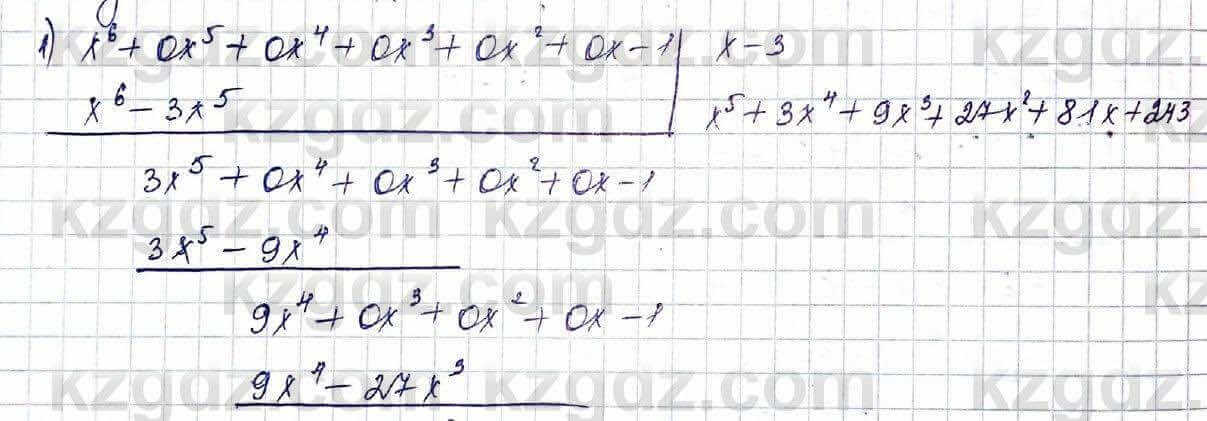 1) x⁶ + 0x⁵ + 0x⁴ + 0x³ + 0x² + 0x - 1 | x - 3
x⁶ - 3x⁵ | x⁵ + 3x⁴ + 9x³ + 27x² + 81x + 243
3x⁵ + 0x⁴ + 0x³ + 0x² + 0x - 1
3x⁵ - 9x⁴
9x⁴ + 0x³ + 0x² + 0x - 1
9x⁴ - 27x³
kzgdz.com